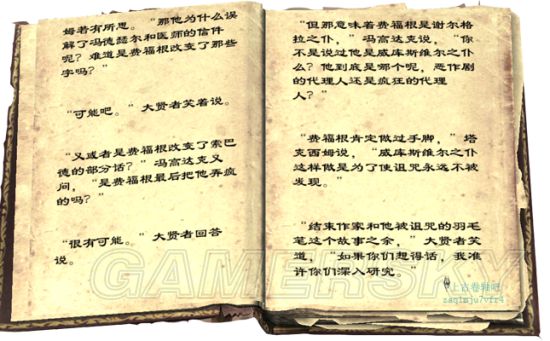 姆若有所思。“那他为什么误
解了冯德瑟尔和医师的信件
呢？难道是费福根改变了那些
字吗？”
“可能吧。”大贤者笑着说。
“又或者是费福根改变了索巴
德的部分话？”冯高达克又
问，“是费福根最后把他弄疯
的吗？”
“很有可能。”大贤者回答
说。
“但那意味着费福根是谢尔格
拉之仆，”冯高达克说，“你
不是说过他是威库斯维尔之仆
么？他到底是哪个呢，恶作剧
的代理人还是疯狂的代理
人？”
“费福根肯定做过手脚，”塔
克西姆说，“威库斯维尔之仆
这样做是为了使诅咒永远不被
发现。”
“结束作家和他被诅咒的羽毛
笔这个故事之余，”大贤者笑
道，“如果你们想得话，我准
许你们深入研究。”
GAMERSKY
上古卷轴吧
zaq1mju7vfr4